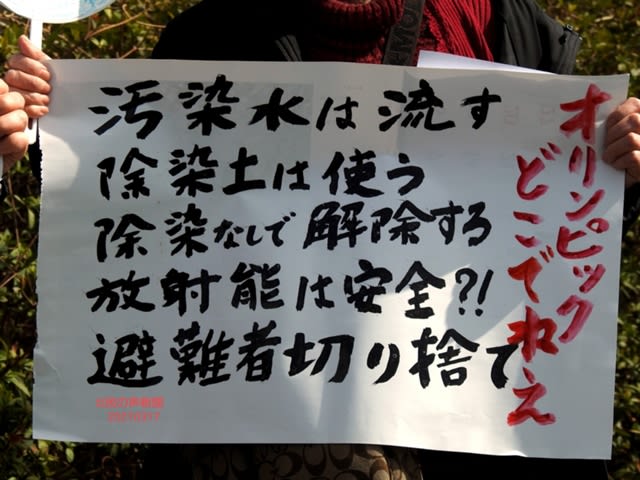 汚染水は流す
除染土は使う
除染なしで解除する
放射能は安全?!
避難者切り捨て
オリンピック
どころでねえ
20210317